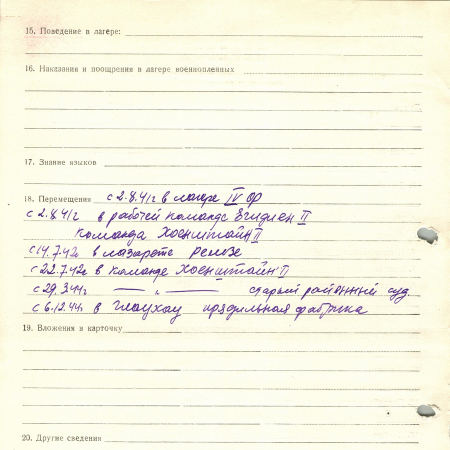 15. Поведение в лагере:
16. Наказания и поощрения в лагере военнопленных
17. Знание языков
18. Перемещения с 2.8.41г в лагере IV Ф
с 2.8.41г в рабочей команде Эгидиен II
команда Хоенштайн II
с 14.7.42г в лазарете
с 22.7.42г в команде Хоенштайн II
с 29.3.44г — „ — старый районный суд.
с 6.12.44г в Глаухау прядильная фабрика
19. Вложения в карточку
20. Другие сведения